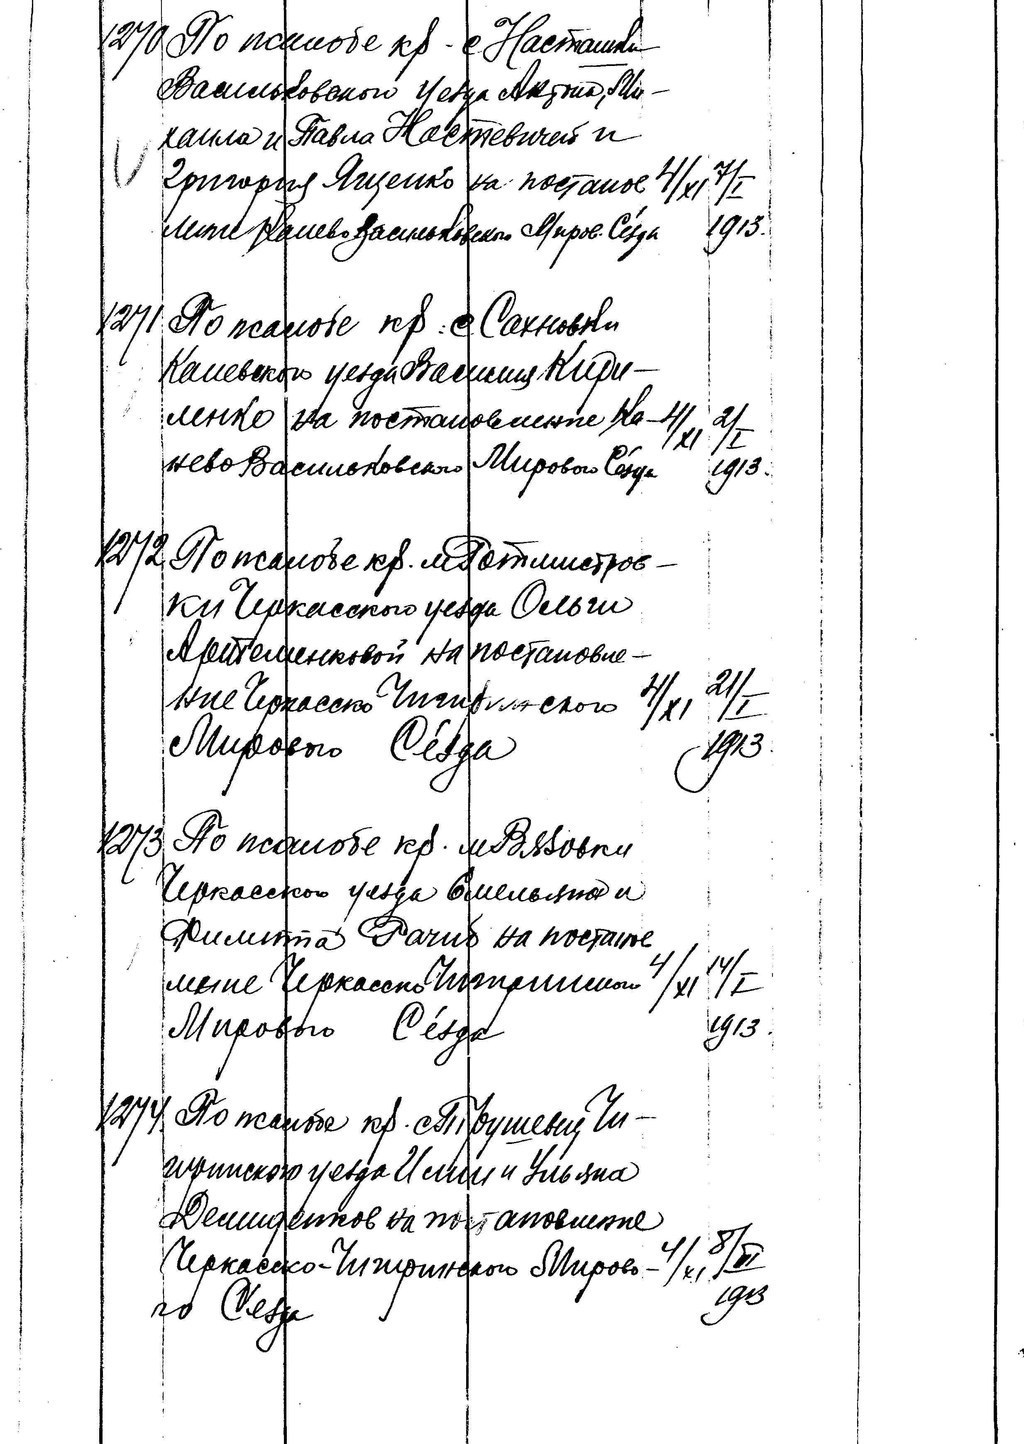 1270 По жалобе кр. с Насташки
Васильковского уезда Антона, Ми-
хаила и Павла Настевичей и
Григория Ященко на постанов 4/XI 7/I
ление Канево Васильковского Миров. Сезда 1913.
1271 По жалобе кр. с Сахновки
Каневского уезда Василия Кири-
ленко на постановление Ка- 4/XI 2/I
нево Васильковского Мирового Сезда 1913.
1272 По жалобе кр. м Ротмистров-
ки Черкасского уезда Ольги
Артеменковой на постановле-
ние Черкасско Чигиринского 4/XI 21/I
Мирового Сезда 1913.
1273 По жалобе кр. м Вязовки
Черкасского уезда Емельяна и
на постанов
ление Черкасско Чигиринского 4/XI 14/I
Мирового Сезда 1913.
1274. По жалобе кр. с Трушевец Чи-
гиринского уезда Илии и Ульяна
Демиденков на постановление
Черкасско-Чигиринского Мирово- 4/XI 8/VI
го Сезда 1913